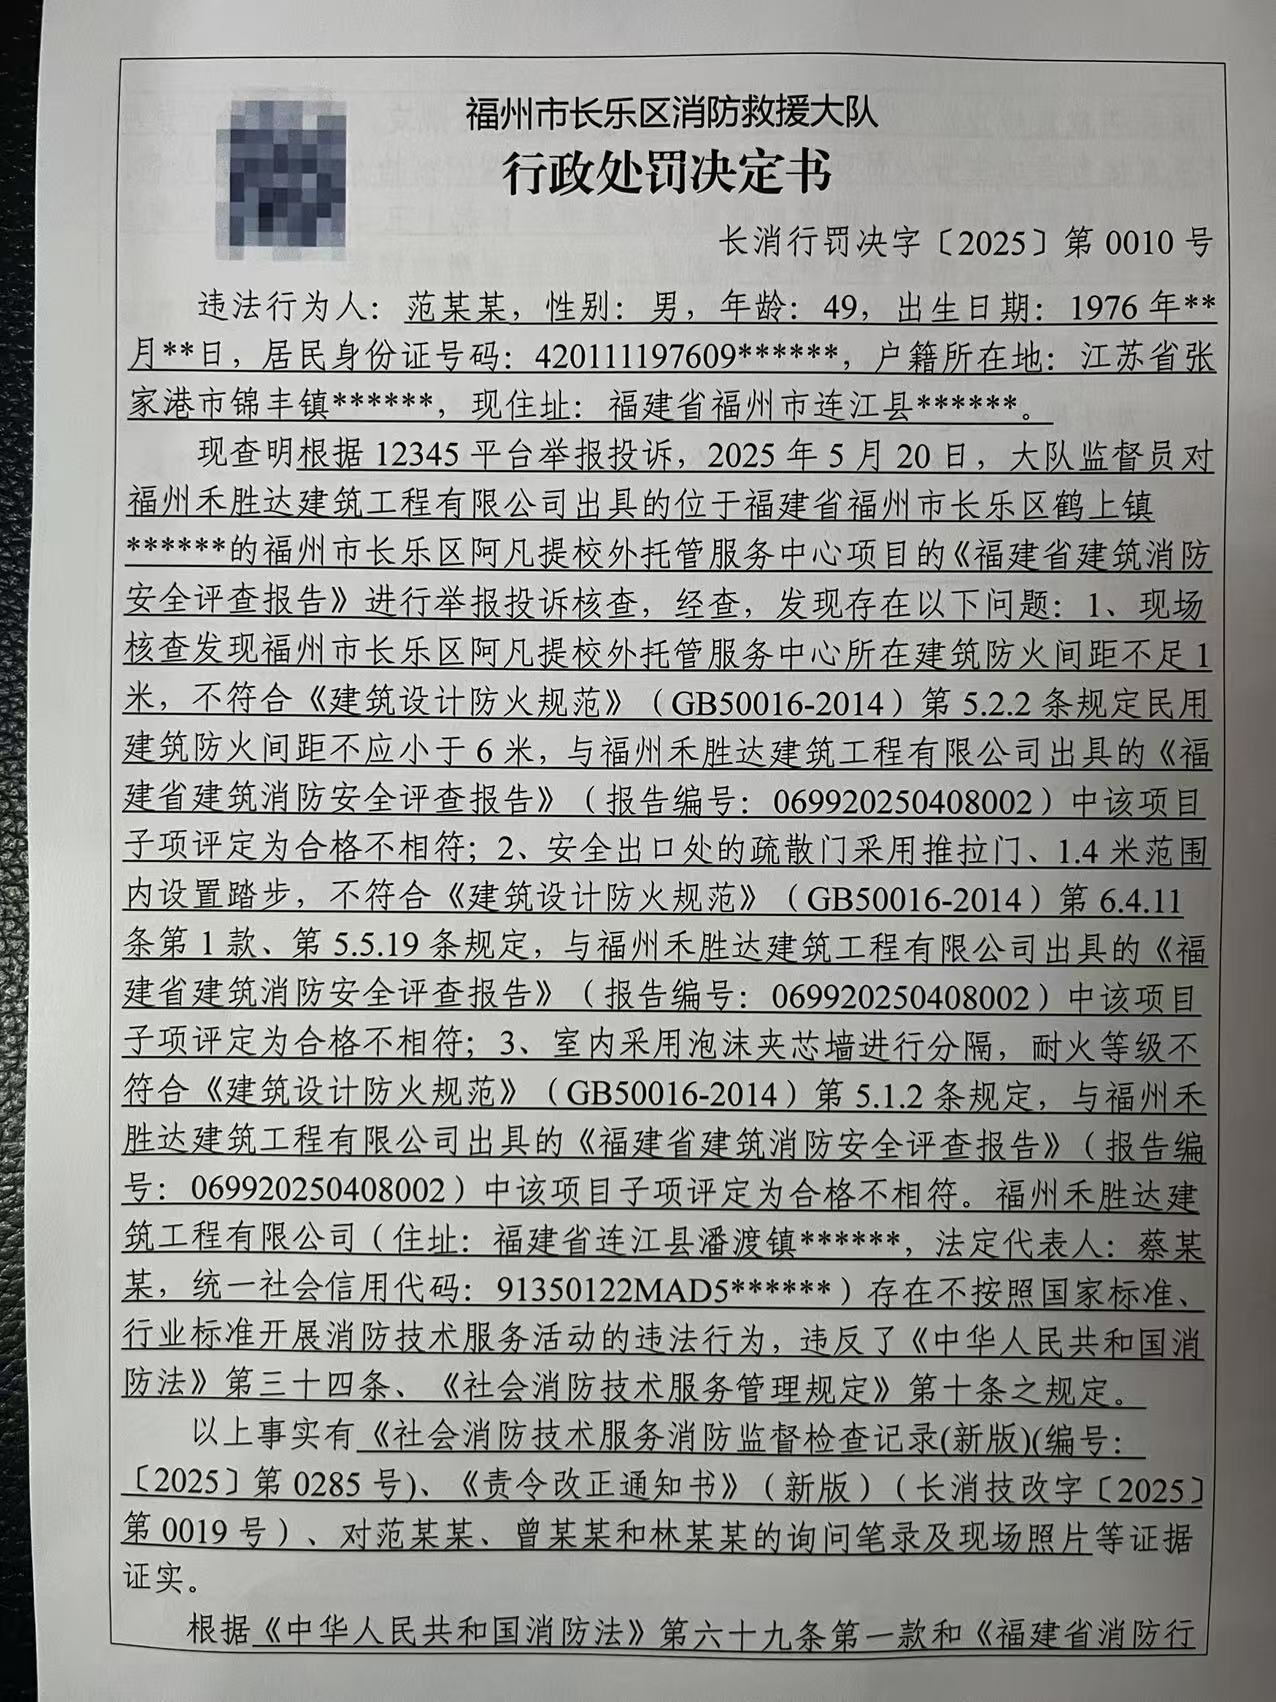 福州市长乐区消防救援大队
行政处罚决定书
长消行罚决字〔2025〕第 0010 号
违法行为人：范某某，性别：男，年龄：49，出生日期：1976 年**
月**日，居民身份证号码：420111197609******，户籍所在地：江苏省张
家港市锦丰镇******，现住址：福建省福州市连江县******。
现查明根据 12345 平台举报投诉，2025 年 5 月 20 日，大队监督员对
福州禾胜达建筑工程有限公司出具的位于福建省福州市长乐区鹤上镇
******的福州市长乐区阿凡提校外托管服务中心项目的《福建省建筑消防
安全评查报告》进行举报投诉核查，经查，发现存在以下问题：1、现场
核查发现福州市长乐区阿凡提校外托管服务中心所在建筑防火间距不足 1
米，不符合《建筑设计防火规范》（GB50016-2014）第 5.2.2 条规定民用
建筑防火间距不应小于 6 米，与福州禾胜达建筑工程有限公司出具的《福
建省建筑消防安全评查报告》（报告编号：069920250408002）中该项目
子项评定为合格不相符；2、安全出口处的疏散门采用推拉门、1.4 米范围
内设置踏步，不符合《建筑设计防火规范》（GB50016-2014）第 6.4.11
条第 1 款、第 5.5.19 条规定，与福州禾胜达建筑工程有限公司出具的《福
建省建筑消防安全评查报告》（报告编号：069920250408002）中该项目
子项评定为合格不相符；3、室内采用泡沫夹芯墙进行分隔，耐火等级不
符合《建筑设计防火规范》（GB50016-2014）第 5.1.2 条规定，与福州禾
胜达建筑工程有限公司出具的《福建省建筑消防安全评查报告》（报告编
号：069920250408002）中该项目子项评定为合格不相符。福州禾胜达建
筑工程有限公司（住址：福建省连江县潘渡镇******，法定代表人：蔡某
某，统一社会信用代码：91350122MAD5******）存在不按照国家标准、
行业标准开展消防技术服务活动的违法行为，违反了《中华人民共和国消
防法》第三十四条、《社会消防技术服务管理规定》第十条之规定。
以上事实有《社会消防技术服务消防监督检查记录(新版)(编号：
〔2025〕第 0285 号)、《责令改正通知书》（新版）（长消技改字〔2025〕
第 0019 号）、对范某某、曾某某和林某某的询问笔录及现场照片等证据
证实。
根据《中华人民共和国消防法》第六十九条第一款和《福建省消防行